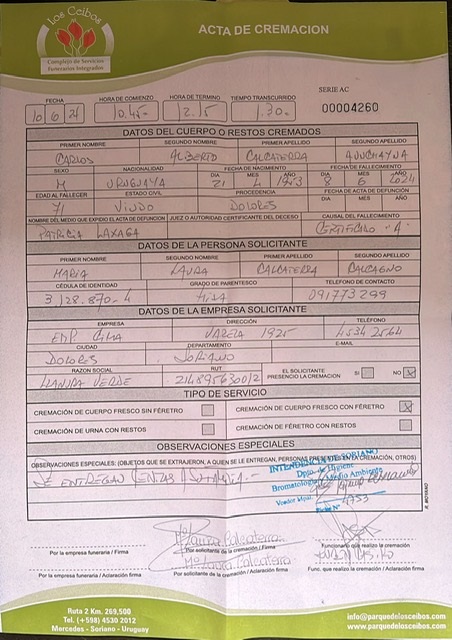 Los Ceibos
Complejo de Servicios
Funerarios Integrados
ACTA DE CREMACION
SERIE AC
FECHA HORA DE COMIENZO HORA DE TERMINO TIEMPO TRANSCURRIDO
10 6 24 10.45- 12.15 1.30.- 00004260
DATOS DEL CUERPO O RESTOS CREMADOS
PRIMER NOMBRE SEGUNDO NOMBRE PRIMER APELLIDO SEGUNDO APELLIDO
CARLOS ALBERTO CALCATERRA
SEXO NACIONALIDAD FECHA DE NACIMIENTO FECHA DE FALLECIMIENTO
DIA MES AÑO DIA MES AÑO
M URUGUAYA 21 4 1953 8 6 2024
EDAD AL FALLECER ESTADO CIVIL PROCEDENCIA FECHA DE ACTA DE DEFUNCIÓN
71 VIUDO DOLORES DIA MES AÑO
NOMBRE DEL MEDICO QUE EXPIDIO EL ACTA DE DEFUNCION JUEZ O AUTORIDAD CERTIFICANTE DEL DECESO CAUSAL DEL FALLECIMIENTO
PATRICIA LAXAGA CERTIFICADO "A"
DATOS DE LA PERSONA SOLICITANTE
PRIMER NOMBRE SEGUNDO NOMBRE PRIMER APELLIDO SEGUNDO APELLIDO
MARIA LAURA CALCATERRA CALCAGNO
CÉDULA DE IDENTIDAD GRADO DE PARENTESCO TELÉFONO DE CONTACTO
3.128.870-4 HIJA 091773299
DATOS DE LA EMPRESA SOLICITANTE
EMPRESA DIRECCIÓN TELÉFONO
EMP VARELA 1925 4534 2564
CIUDAD DEPARTAMENTO E-MAIL
DOLORES SORIANO
RAZON SOCIAL RUT EL SOLICITANTE PRESENCIO LA CREMACIÓN SI NO X
VERDE 214895630012
TIPO DE SERVICIO
CREMACIÓN DE CUERPO FRESCO SIN FÉRETRO CREMACIÓN DE CUERPO FRESCO CON FÉRETRO X
CREMACIÓN DE URNA CON RESTOS CREMACIÓN DE FÉRETRO CON RESTOS
OBSERVACIONES ESPECIALES
OBSERVACIONES ESPECIALES: (OBJETOS QUE SE EXTRAJERON, A QUIEN SE LE ENTREGAN, PERSONAS PRESENTES EN LA CREMACIÓN, OTROS)
SE ENTREGAN CENIZAS
INTENDENCIA DE SORIANO
Dpto. de Higiene
Bromatología y Medio Ambiente
1753
R. MOYANO
Mª Laura Calcaterra
Por la empresa funeraria / Firma Por solicitante de la cremación / Firma Funcionario que realizo la cremación
Mª Laura Calcaterra
Por la empresa funeraria / Aclaración firma Por solicitante de la cremación / Aclaración firma Func. que realizo la cremación / Aclaración firma
Ruta 2 Km. 269,500
Tel. (+598) 4530 2012
Mercedes - Soriano - Uruguay
info@parquedelosceibos.com
www.parquedelosceibos.com